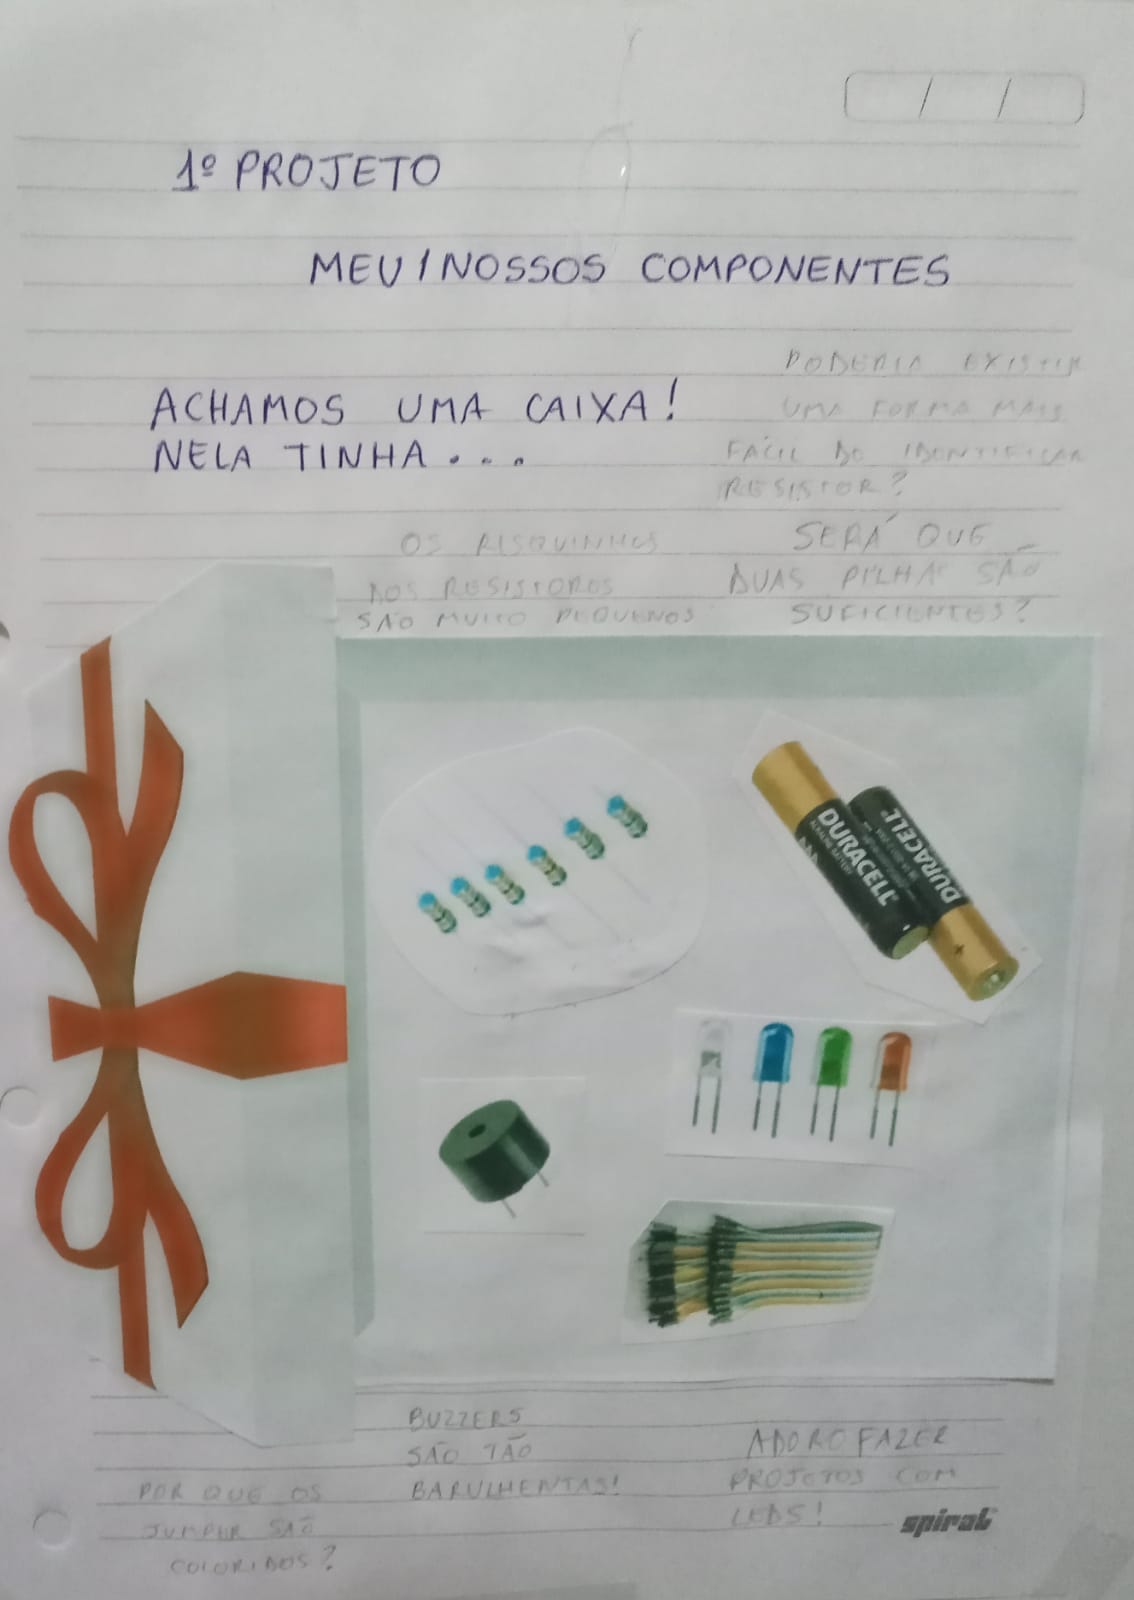 1º PROJETO
MEU/NOSSOS COMPONENTES
ACHAMOS UMA CAIXA!
NELA TINHA...
PODERIA EXISTIR
UMA FORMA MAIS
FÁCIL DE IDENTIFICAR
RESISTOR?
OS RISQUINHOS
DOS RESISTORES
SÃO MUITO PEQUENOS
SERÁ QUE
DUAS PILHAS SÃO
SUFICIENTES?
DURACELL
ALKALINE BATTERY
DURACELL
+
BUZZERS
SÃO TÃO
BARULHENTAS!
ADORO FAZER
PROJETOS COM
LEDS!
POR QUE OS
JUMPER SÃO
COLORIDOS?
spiral